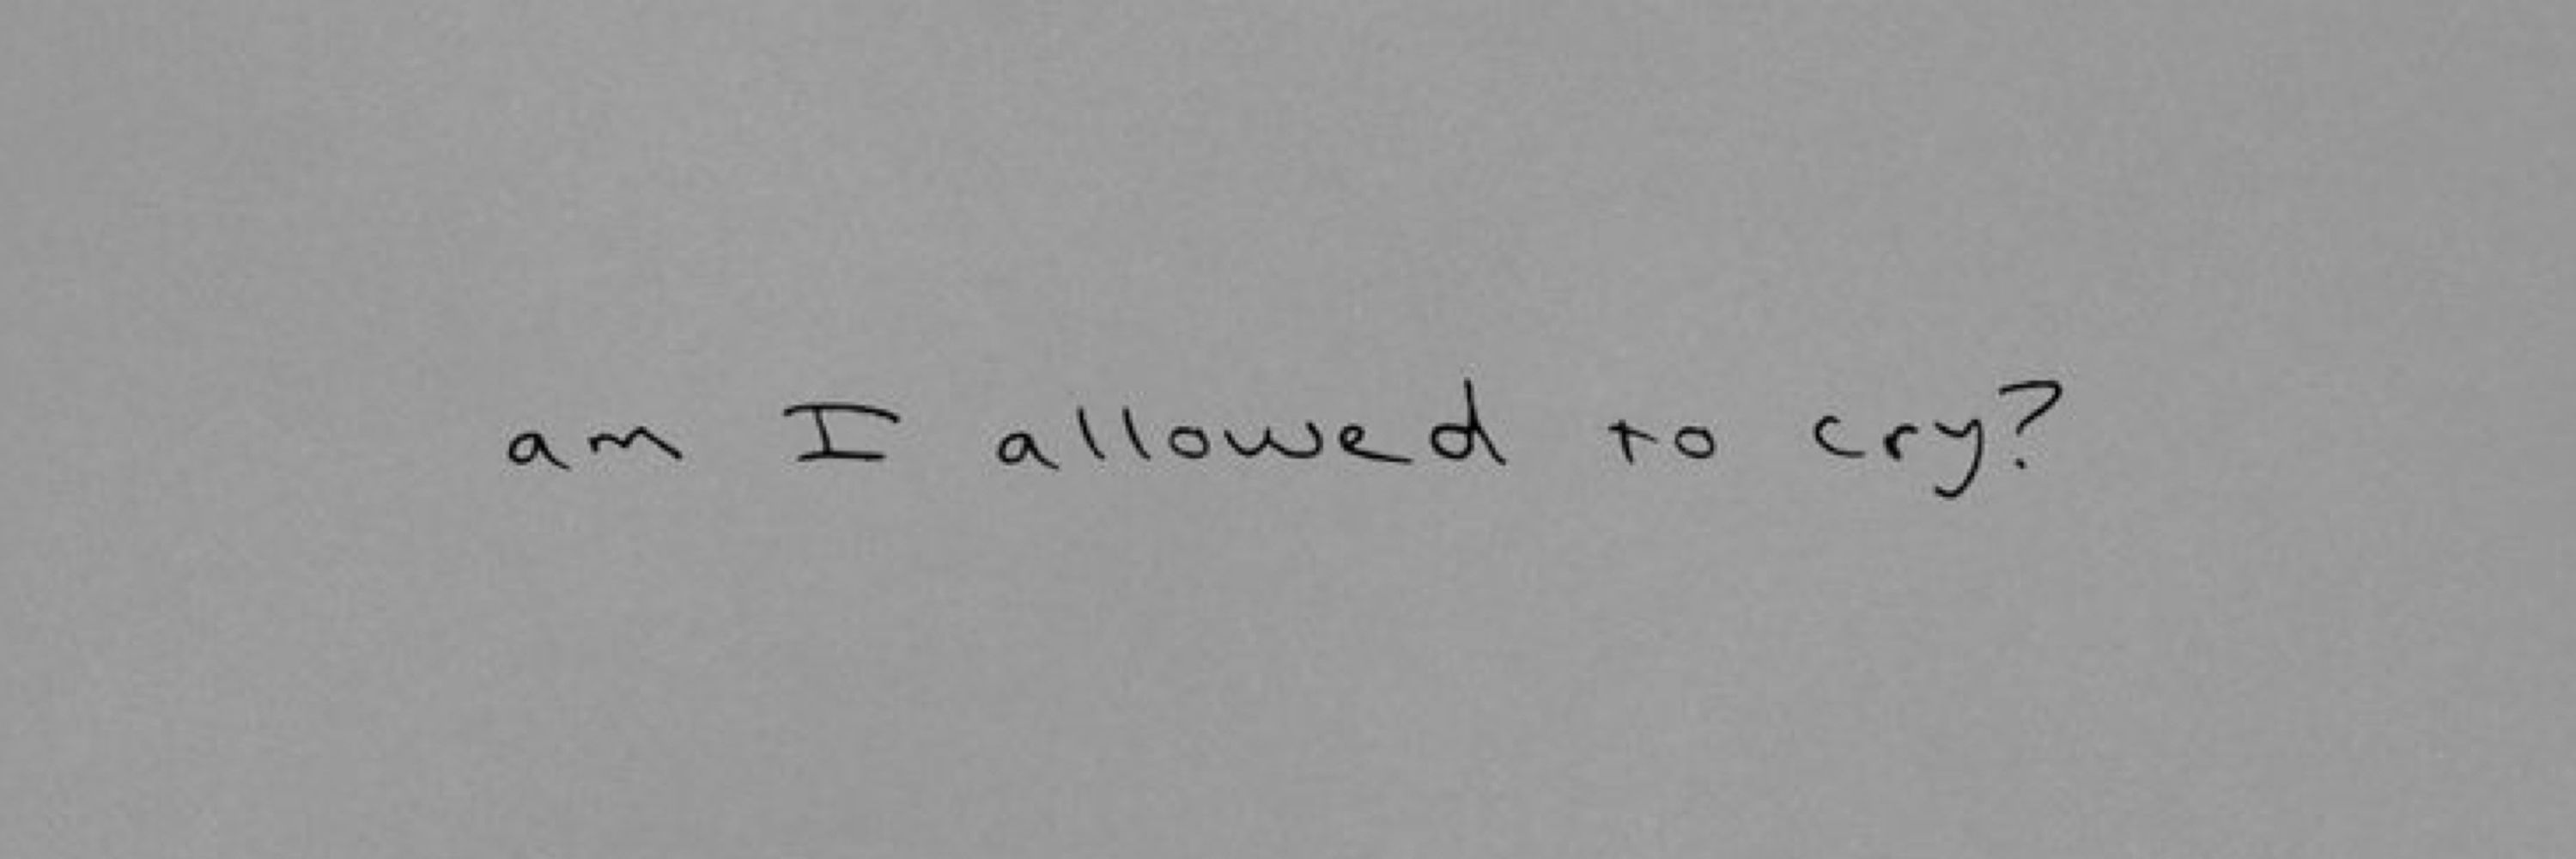 am I allowed to cry?